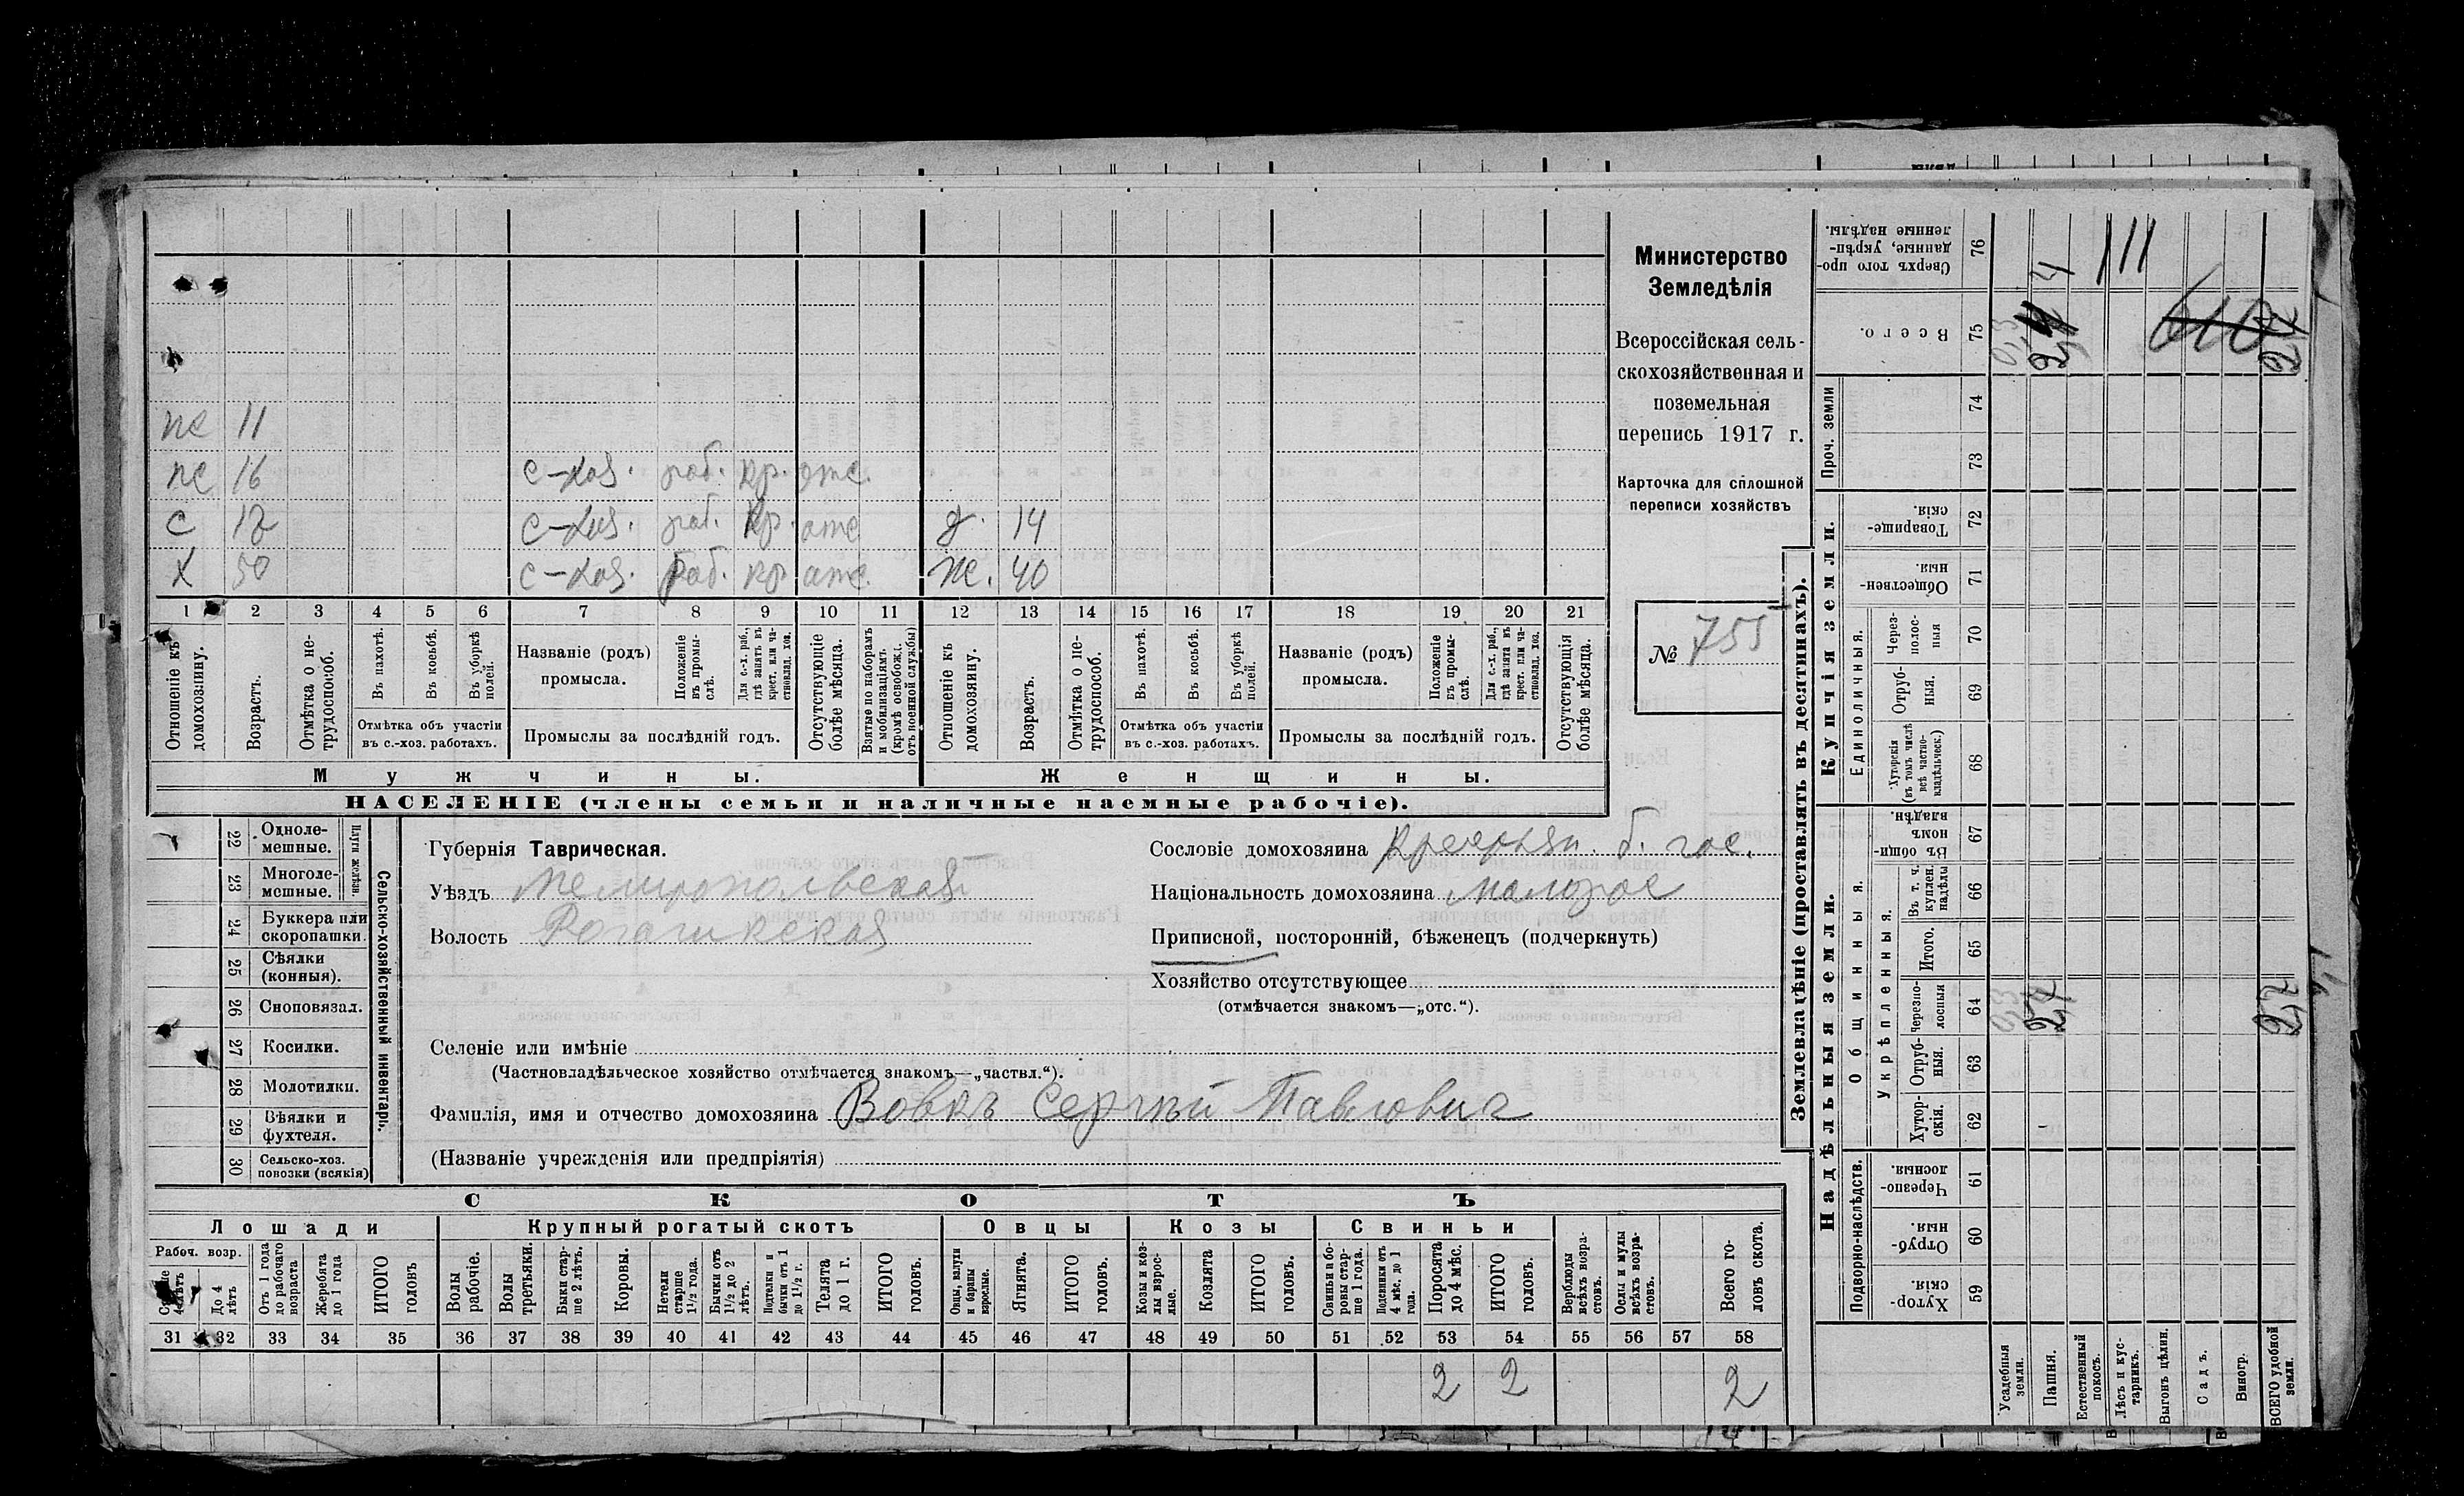 Министерство
Земледѣлія
Всероссійская сель-
скохозяйственная и
поземельная
перепись 1917 г.
Карточка для сплошной
переписи хозяйствъ
№ 755
пс 11
пс 16 с-хоз. раб. кр. отс.
с 12 с-хоз. раб. кр. отс д. 14
х 50 с-хоз. раб. кр отс. ж. 40
1 2 3 4 5 6 7 8 9 10 11 12 13 14 15 16 17 18 19 20 21
Отношеніе къ домохозяину.
Возрастъ.
Отмѣтка о не-трудоспособ.
Въ пахотѣ.
Въ косьбѣ.
Въ уборкѣ полей.
Отмѣтка объ участіи
въ с.-хоз. работахъ.
Названіе (родъ)
промысла.
Положеніе въ промы-слѣ.
Для с.-х. раб., гдѣ занятъ въ крест. или ча-стновлад. хоз.
Промыслы за послѣдній годъ.
Отсутствующіе болѣе мѣсяца.
Взятые по наборамъ и мобилизаціямъ (кромѣ освобожд. отъ военной службы)
Отношеніе къ домохозяину.
Возрастъ.
Отмѣтка о не-трудоспособ.
Въ пахотѣ.
Въ косьбѣ.
Въ уборкѣ полей.
Отмѣтка объ участіи
въ с.-хоз. работахъ.
Названіе (родъ)
промысла.
Положеніе въ промы-слѣ.
Для с.-х. раб., гдѣ занята въ крест. или ча-стновлад. хоз.
Промыслы за послѣдній годъ.
Отсутствующія болѣе мѣсяца.
Мужчины. Женщины.
НАСЕЛЕНІЕ (члены семьи и наличные наемные рабочіе).
22 Одноле-мешные.
23 Многоле-мешные.
Плуги желѣзн.
24 Буккера или скоропашки.
25 Сѣялки (конныя).
26 Сноповязал.
27 Косилки.
28 Молотилки.
29 Вѣялки и фухтеля.
30 Сельско-хоз. повозки (всякія)
Сельско-хозяйственный инвентарь.
Губернія Таврическая.
Уѣздъ Мелитопольская
Волость Рогачикская
Сословіе домохозяина Крестьян. б. гос.
Національность домохозяина Малорос
Приписной, посторонній, бѣженецъ (подчеркнуть)
Хозяйство отсутствующее
(отмѣчается знакомъ—„отс.“).
Селеніе или имѣніе
(Частновладѣльческое хозяйство отмѣчается знакомъ—„частвл.“).
Фамилія, имя и отчество домохозяина Вовкъ Сергѣй Павлович
(Названіе учрежденія или предпріятія)
СКОТЪ
Лошади Крупный рогатый скотъ Овцы Козы Свиньи
Рабоч. возр.
До 4 лѣтъ
Отъ 1 года до рабочаго возраста
Жеребята до 1 года
ИТОГО головъ
Волы рабочіе.
Волы третьяки.
Быки стар-ше 2 лѣтъ.
Коровы.
Нетели старше 1½ года.
Бычки отъ 1½ до 2 лѣтъ.
Подтелки и бычки отъ 1 до 1½ г.
Телята до 1 г.
ИТОГО головъ.
Овцы, валухи и бараны взрослые.
Ягнята.
ИТОГО головъ.
Козы и коз-лы взрос-лые.
Козлята
ИТОГО головъ.
Свиньи и бо-ровы стар-ше 1 года.
Подсвинки отъ 4 мѣс. до 1 года.
Поросята до 4 мѣс.
ИТОГО головъ.
Верблюды всѣхъ возра-стовъ.
Ослы и мулы всѣхъ возра-стовъ.
Всего го-ловъ скота.
31 32 33 34 35 36 37 38 39 40 41 42 43 44 45 46 47 48 49 50 51 52 53 54 55 56 57 58
2 2 2
Землевладѣніе (проставлять въ десятинахъ).
Надѣльныя земли. Купчія земли.
Проч. земли
Подворно-наслѣдств.
Общинныя.
Укрѣпленныя.
Единоличныя.
59 Хутор-скія.
60 Отруб-ныя.
61 Черезпо-лосныя.
62 Хутор-скія.
63 Отруб-ныя.
64 Черезпо-лосныя
65 Итого.
66 Въ т. ч. куплен. надѣлы
67 Въ общин-номъ владѣн.
68 Хуторскія (въ томъ числѣ всѣ частно-владѣльческ.)
69 Отруб-ныя.
70 Через-полос-ныя
71 Обществен-ныя.
72 Товарище-скія.
73
74
75 Всего.
76 Сверхъ того про-данные, укрѣп-ленные надѣлы.
Усадебныя земли.
Пашня.
Естественный покосъ.
Лѣсъ и кус-тарникъ.
Выгонъ цѣлин.
Садъ.
Виногр.
ВСЕГО удобной земли.